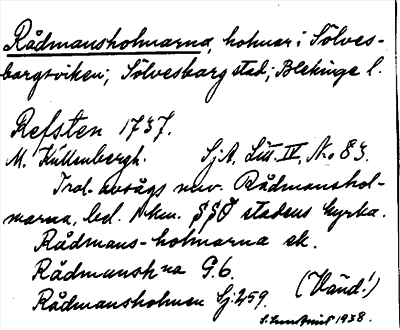 Rådmansholmarna, holmar i Sölves-
borgsviken; Sölvesborg stad; Blekinge l.
Refsten 1737.
M. Küllenbergh. SjA, Litt. IV, No 83.
Trol. avsågs nuv. Rådmanshol-
marna, bel. 1 km. SSO stadens kyrka.
Rådmans-holmarna ek.
Rådmanshna G.6.
Rådmansholmen Sj:259. (Vänd!)
1938.